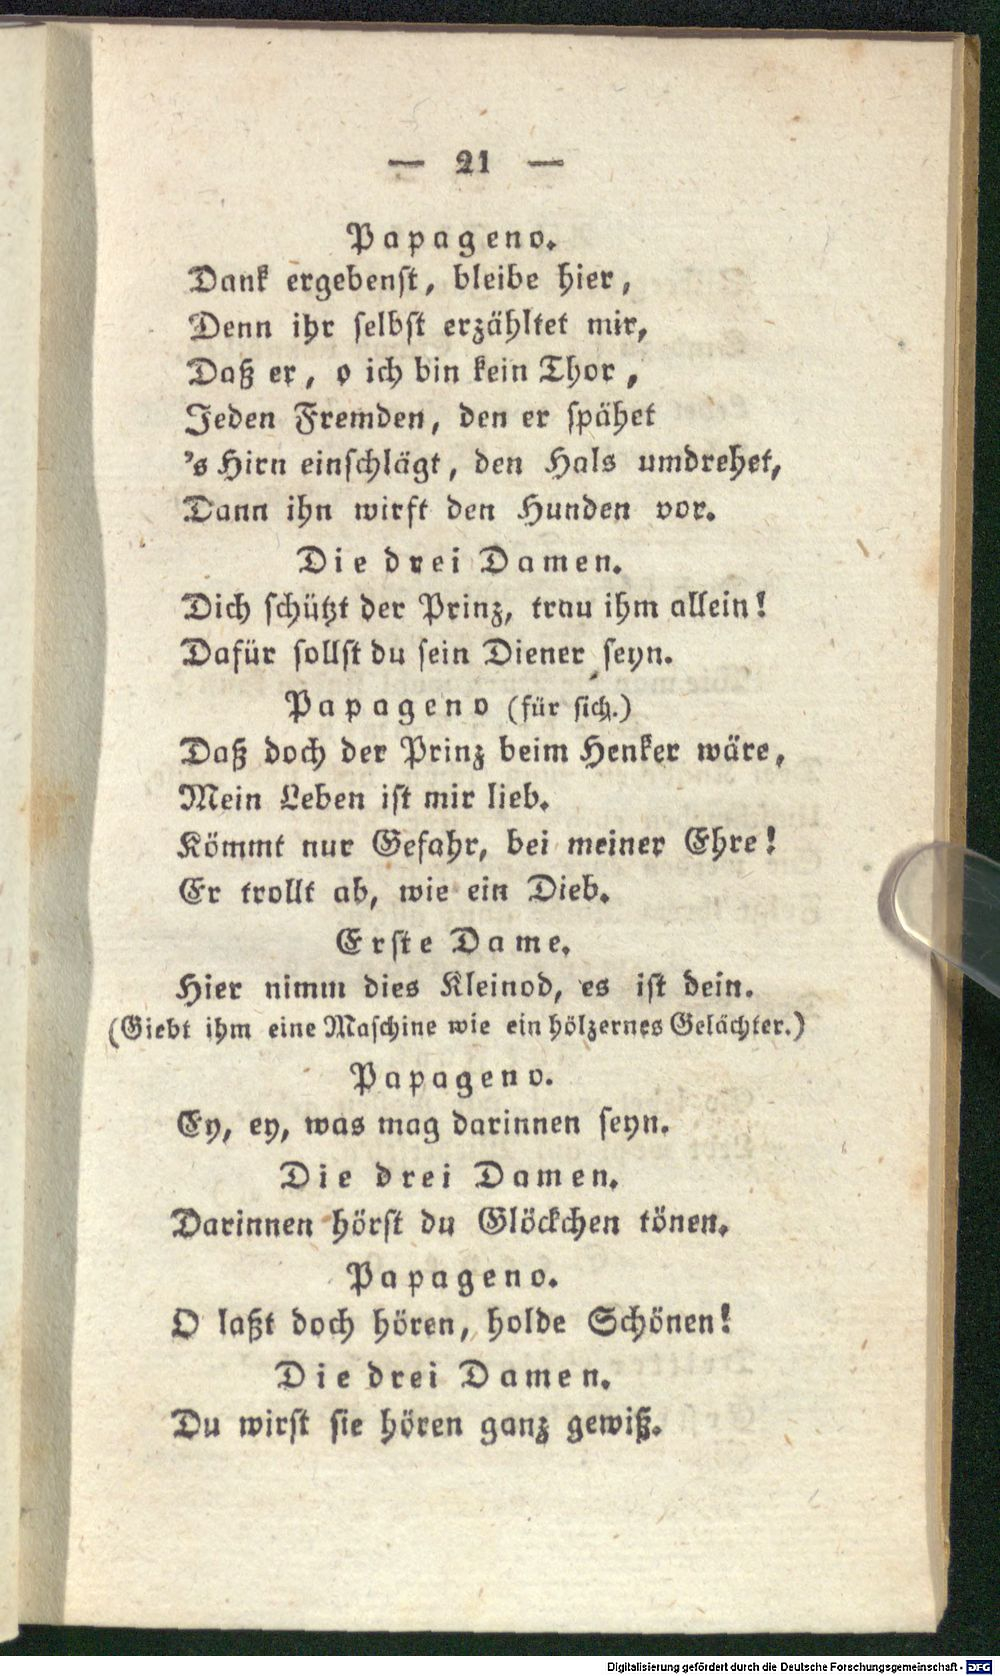 — 21 —
Papageno.
Dank ergebenst, bleibe hier,
Denn ihr selbst erzähltet mir,
Daß er, o ich bin kein Thor,
Jeden Fremden, den er spähet
's Hirn einschlägt, den Hals umdrehet,
Dann ihn wirft den Hunden vor.
Die drei Damen.
Dich schützt der Prinz, trau ihm allein!
Dafür sollst du sein Diener seyn.
Papageno (für sich.)
Daß doch der Prinz beim Henker wäre,
Mein Leben ist mir lieb.
Kömmt nur Gefahr, bei meiner Ehre!
Er trollt ab, wie ein Dieb.
Erste Dame.
Hier nimm dies Kleinod, es ist dein.
(Giebt ihm eine Maschine wie ein hölzernes Gelächter.)
Papageno.
Ey, ey, was mag darinnen seyn.
Die drei Damen.
Darinnen hörst du Glöckchen tönen.
Papageno.
O laßt doch hören, holde Schönen!
Die drei Damen.
Du wirst sie hören ganz gewiß.
Digitalisierung gefördert durch die Deutsche Forschungsgemeinschaft - DFG